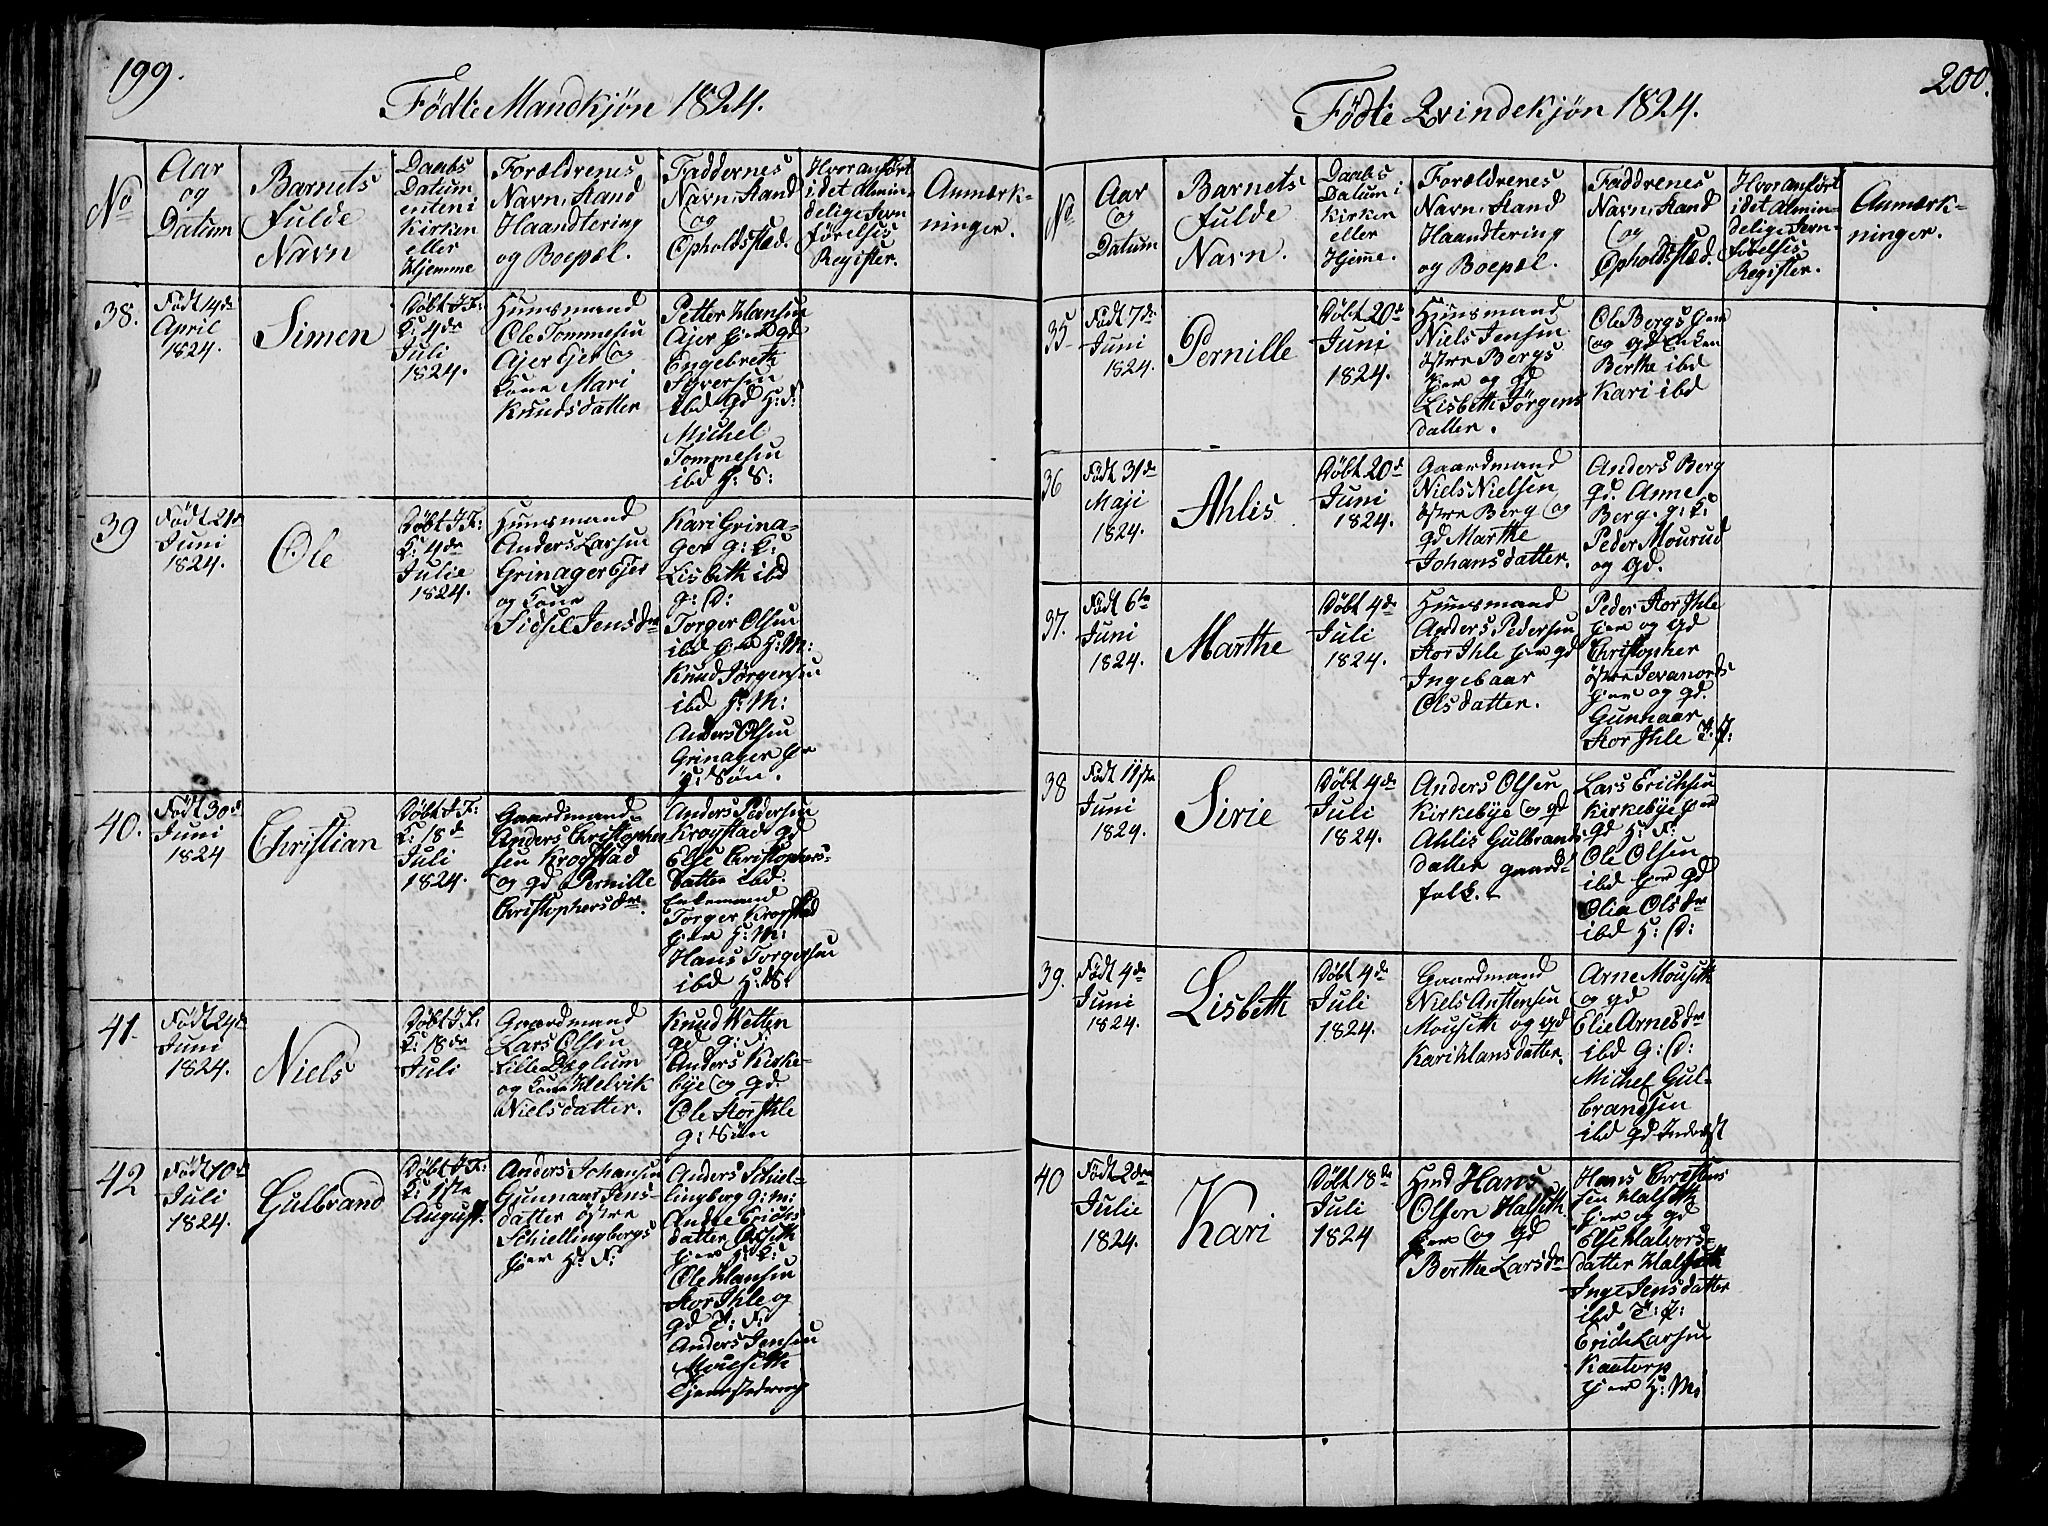 199.
Fødte Mandkjøn 1824.
No
Aar
og
Datum
Barnets
fulde
Navn
Daabs
Datum
enten i
Kirken
eller
Hjemme
Forældrenes
Navn, Stand
Haandtering
og Boepæl.
Faddernes
Navn, Stand
og
Opholdsstæd.
Hvor anført
i det almin-
delige Jevn-
førelses
Register.
Anmærk-
ninger.
38.
Født 4de
April
1824.
Simen
Døbt J. F:
K: 4de
Juli
1824.
Huusmand
Ole Tommesen
Ajer Ejer og
Kone Mari
Knudsdatter
Petter Hansen
Ajer Ejer Qd
Engebreth
Syversen
ibd Qd H: F:
Michel
Tommesen
ibd H: S:
39
Født 21de
Juni
1824.
Ole
Døbt J. F:
K: 4de
Julie
1824.
Huusmand
Anders Larsen
Grinager Ejer
og Kone
Sidsel Jensdr
Kari Grina-
ger g: K:
Lisbeth ibd
g: D:
Torger Olsen
ibd Ejer H: M:
Knud Jørgensen
ibd H: M:
Anders Olsen
Grinager Ejer
g: Søn.
40.
Født 30te
Juni
1824
Christian
Døbt J. F:
K: 18de
Juli
1824.
Gaardmand
Anders Christopher-
sen Krogstad
og Qd Pernille
Christophersdr.
Anders Pedersen
Krogstad Qd
Else Christophers-
datter ibd.
Enkemand
Torger Krogstad
Ejer H: M:
Hans Torgersen
ibd H: S:
41.
Født 24de
Juni
1824.
Niels
Døbt J. F:
K: 18de
Juli
Gaardmand
Lars Olsen
Lille Dæhlum
og Kone Helvik
Nielsdatter.
Knud Wetten
Qd g: F:
Anders Kirke-
bye og Qd
Ole Stor Ihle
g: Søn
42
Født 10de
Juli
1824.
Gulbrand
Døbt J. F:
K: 1ste
August.
Anders Johansen
Gunnaar Jens-
datter østre
Schiellingbergs
Ejer H: F:
Anders Schiel-
lingberg g: M:
Andre Erichs
datter
Ejer H: K:
Ole Hansen
Stor Ihle og
Qd T: F:
Anders Jensen
Mouseth
200.
Fødte Qvindekjøn 1824.
No
Aar
og
Datum
Barnets
fulde
Navn.
Daabs
Datum i
Kirken
eller
Hjeme.
Forældrenes
Navn, Stand
Haandtering
og Boepæl.
Faddrenes
Navn, Stand
og
Opholdsstæd.
Hvor anført
i det almin-
delige Jevn-
førelses
Register.
Anmærk-
ninger.
35
Født 7de
Juni
1824.
Pernille
Døbt 20de
Juni
1824.
Huusmand
Niels Jensen
østre Bergs
Ejer og Qd
Lisbeth Jørgens
datter.
Ole Bergs Ejer
og Qd Enken
Berthe ibd
Kari ibd
36
Født 31de
Maji
1824.
Ahlis
Døbt 20de
Juni
1824.
Gaardmand
Niels Nielsen
østre Berg og
Qd Marthe
Johansdatter.
Anders Berg
Qd. Anne
Berg. g: K:
Peder Mourud
og Qd.
37.
Født 6te
Juni
1824.
Marthe
Døbt 4de
Juli
1824.
Huusmand
Anders Pedersen
Stor Ihle Ejer Qd
Ingebaar
Olsdatter.
Peder Stor Ihle
Ejer og Qd
Christopher
østre Jevanords
Ejer og Qd.
Gunnaar
Stor Ihle T: P:
38
Født 11ste
Juni
1824.
Sirie
Døbt 4de
Juli
1824.
Anders Olsen
Kirkebye og Qd
Ahlis Gulbrands-
datter gaard-
folk.
Lars Erichsen
Kirkebye Ejer
Qd H: F:
Ole Olsen
ibd Ejer Qd
Olia Olsdr
ibd H: D:
39.
Født 4de
Juni
1824.
Lisbeth
Døbt 4de
Juli
1824.
Gaardmand
Niels Anstensen
Mouseth og Qd
Kari Hansdatter.
Arne Mouseth
og Qd
Elie Arnesdr
ibd g: D:
Michel Gul-
brandsen
ibd Qd Inderst
40
Født 2den
Julie
1824.
Kari
Døbt 18de
Juli
1824
Hmd Hans
Olsen Halseth
Ejer og Qd
Berthe Larsdr
Hans Christen-
sen Halseth
Ejer og Qd
Else Halvors-
datter Halseth
Inge Jensdatter
ibd T: P:
Erich Larsen
Kaatorp
Ejer H: M: